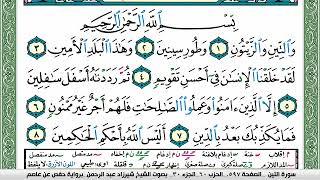 بِسْمِ اللَّهِ الرَّحْمَٰنِ الرَّحِيمِ
وَالتِّينِ وَالزَّيْتُونِ ١ وَطُورِ سِينِينَ ٢ وَهَٰذَا الْبَلَدِ الْأَمِينِ ٣
لَقَدْ خَلَقْنَا الْإِنسَٰنَ فِي أَحْسَنِ تَقْوِيمٍ ٤ ثُمَّ رَدَدْنَٰهُ أَسْفَلَ سَٰفِلِينَ
٥ إِلَّا الَّذِينَ ءَامَنُوا وَعَمِلُوا الصَّٰلِحَٰتِ فَلَهُمْ أَجْرٌ غَيْرُ مَمْنُونٍ ٦
فَمَا يُكَذِّبُكَ بَعْدُ بِالدِّينِ ٧ أَلَيْسَ اللَّهُ بِأَحْكَمِ الْحَٰكِمِينَ ٨
سورة التين الصفحة ٥٩٧ الحزب ٦٠ الجزء ٣٠ بصوت الشيخ شيرزاد عبد الرحمن برواية حفص عن عاصم